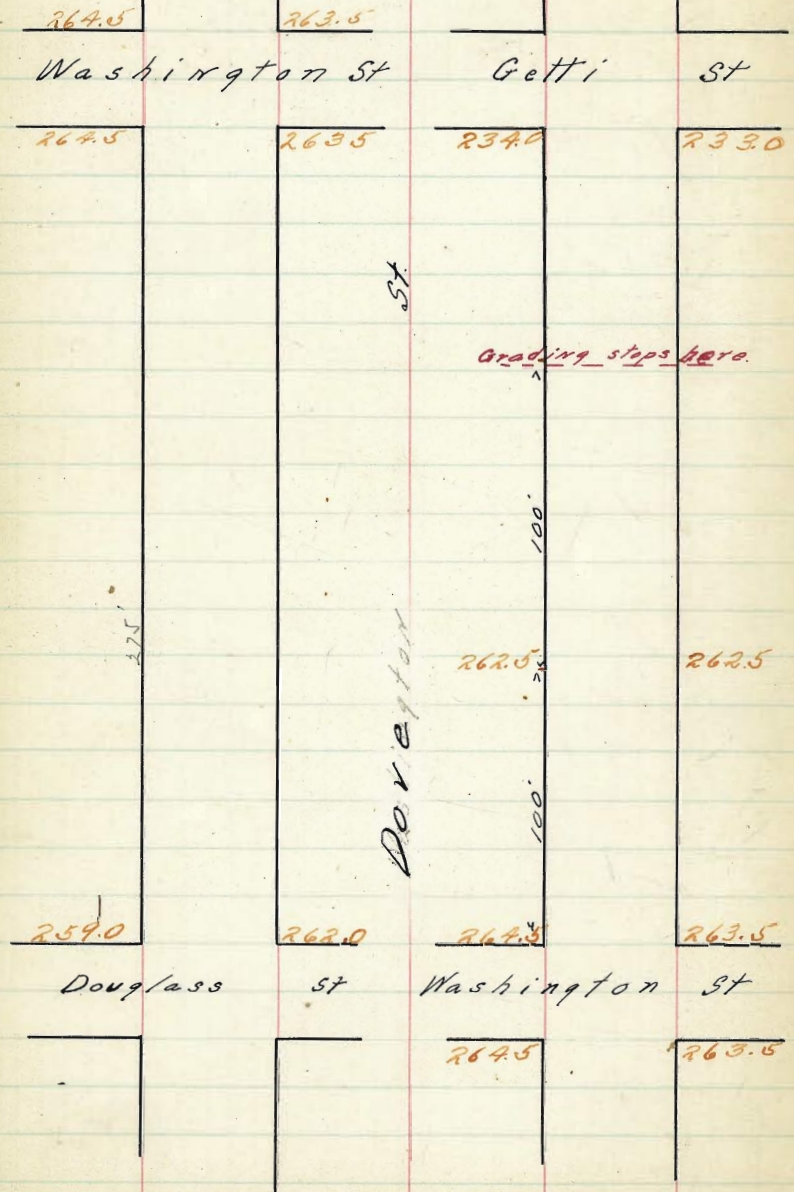 264.5 263.5
Washington St Getti St
264.5 2635 234.0 233.0
St.
Grading stops here.
100'
275'
262.5 262.5
Dovington
100'
259.0 262.0 264.5 263.5
Douglass St Washington St
264.5 263.5